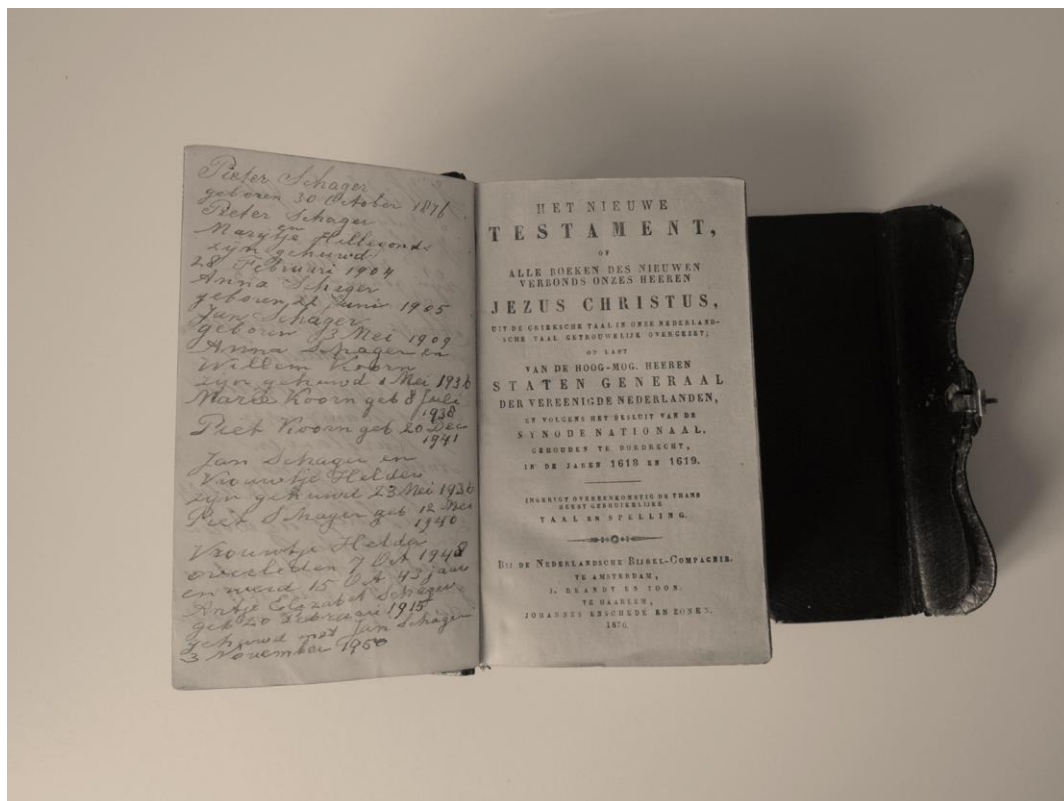 Pieter Schager
geboren 30 October 1876
Pieter Schager
en
Marijtje
zijn gehuwd
28 Februari 1904
Anna Schager
geboren Juni 1905
Jan Schager
geboren 13 Mei 1909
Anna Schager en
Willem Koorn
zijn gehuwd Mei 1936
Marie Koorn geb 8 Juli
1938
Piet Koorn geb 20 Dec
1941
Jan Schager en
Vrouwtje Helder
zijn gehuwd 23 Mei 1936
Piet Schager geb 12 Mei
1940
Vrouwtje Helder
overleden 7 Oct 1948
en werd 15 Oct 43 jaar
Antje Elizabet
geb 20 Februari 1915
gehuwd met Jan Schager
3 November 1950
HET NIEUWE
TESTAMENT,
OF
ALLE BOEKEN DES NIEUWEN
VERBONDS ONZES HEEREN
JEZUS CHRISTUS,
UIT DE GRIEKSCHE TAAL IN ONZE NEDERLAND-
SCHE TAAL GETROUWELIJK OVERGEZET;
OP LAST
VAN DE HOOG-MOG. HEEREN
STATEN GENERAAL
DER VEREENIGDE NEDERLANDEN,
EN VOLGENS HET BESLUIT VAN DE
SYNODE NATIONAAL,
GEHOUDEN TE DORDRECHT,
IN DE JAREN 1618 EN 1619.
INGERIGT OVEREENKOMSTIG DE THANS
MEEST GEBRUIKELIJKE
TAAL EN SPELLING.
BIJ DE NEDERLANDSCHE BIJBEL-COMPAGNIE.
TE AMSTERDAM,
J. BRANDT EN ZOON.
TE HAARLEM,
JOHANNES ENSCHEDE EN ZONEN.
1870.